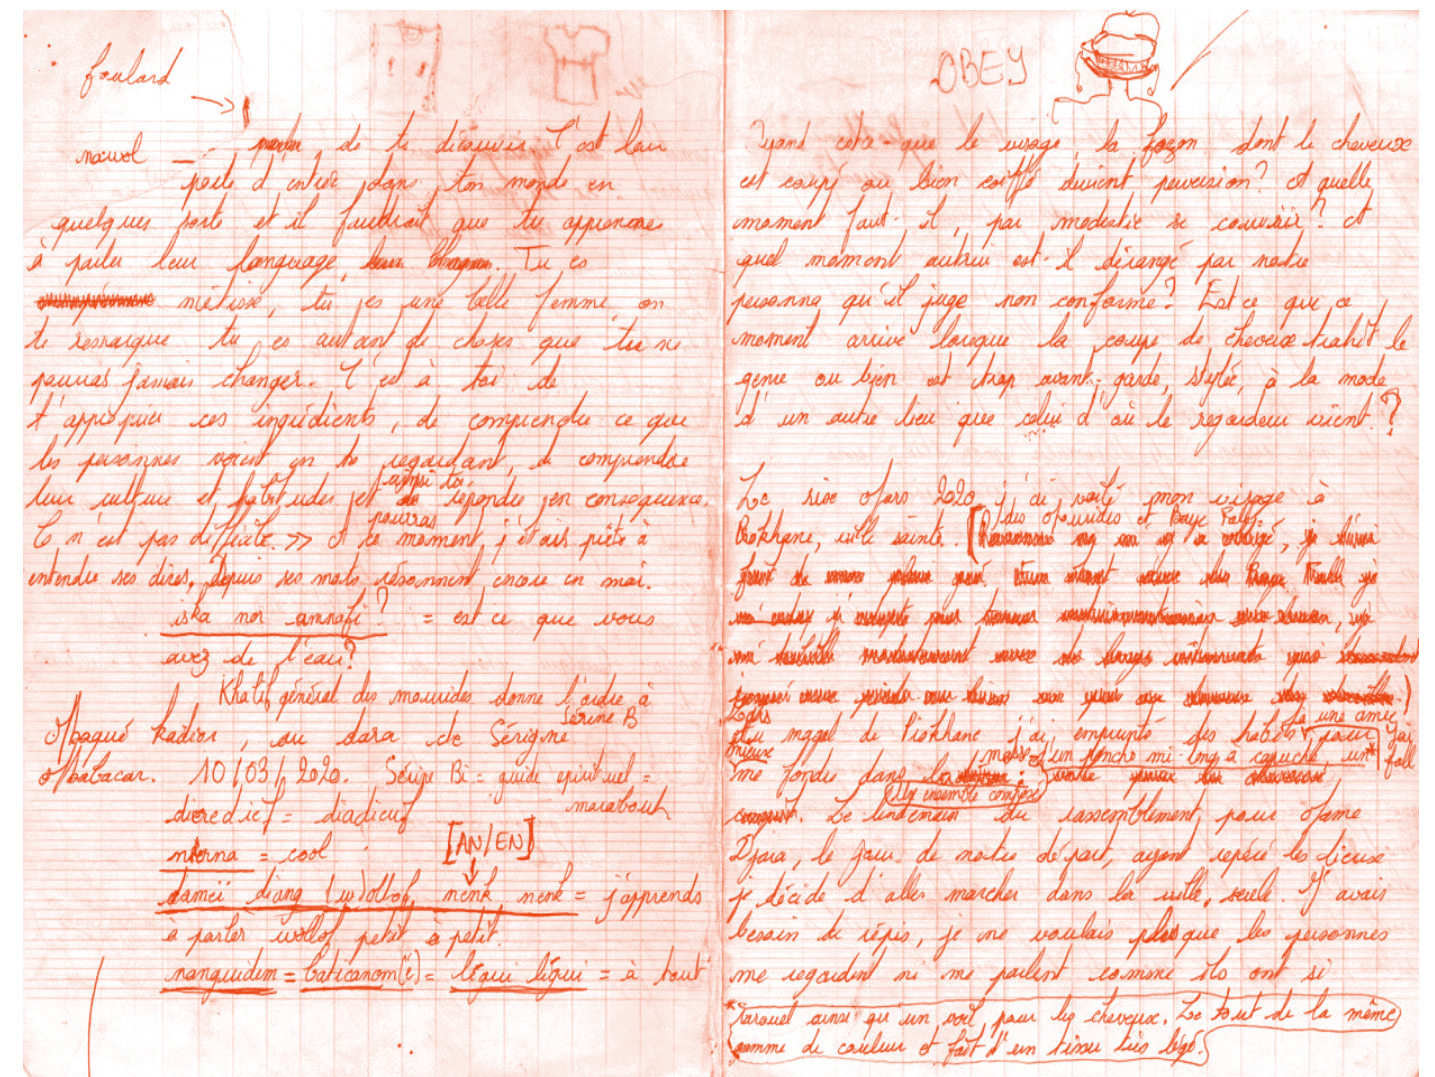 foulard
nawol
de te découvrir. C'est leur
porte d'entrée dans ton monde en
quelques sorte et il faudrait que tu apprennes
à parler leur language, Tu es
métisse, tu es une belle femme, on
te remarque tu es autant de choses que tu ne
pourras jamais changer. C'est à toi de
t'approprier ces ingrédients, de comprendre ce que
les personnes voient en te regardant, de comprendre
leur culture et habitudes et ainsi tu
pourras répondre en conséquence.
Ce n'est pas difficile. >> A ce moment j'étais prête à
entendre ses dires, depuis ses mots résonnent encore en moi.
iska nor amnafi? = est ce que vous
avez de l'eau?
Khalif général des mourides donne l'ordre à
Mbaqué Kadior, au dara de Sérigne
Mbabacar. 10/03/2020. Sérine Bi = guide epirituel =
marabout
Sérine B
dieredief = diadieuf
nterna = cool
[AN/EN]
damei diang (w)ollof, nenk nenk = j'apprends
a parler wollof petit a petit.
nanguidem = baticanom(i) = légui légui = à tout
OBEY
Quand est ce-que le visage, la façon dont le cheveux
est coupé ou bien coiffé devient perversion? A quelle
moment faut-il, par modestie se couvrir? A
quel moment autrui est-il dérangé par notre
personna qu'il juge non conforme? Est ce que ce
moment arrive lorsque la coupe de cheveux trahit le
genre ou bien est trop avant-garde, stylée, à la mode
d'un autre lieu que celui d'où le regardeur vient?
Le six Mars 2020 j'ai voilé mon visage à
Prokhane, ville sainte. [des Mourides et Baye Fall,
Lors
du maggal de Prokhane j'ai emprunté des habits à une amie pour
mieux
me fondre dans la masse: d'un poncho mi-long à capuche, un*
Un ensemble composé
Le lendemain du rassemblement, pour Mame
Djara, le jour de notre départ, ayant repéré les lieux
je décide d'aller marcher dans la ville, seule. J'avais
besoin de répis, je ne voulais plus que les personnes
me regardent ni me parlent comme ils ont si
*sarouel ainsi qu'un voil pour les cheveux. Le tout de la même
gamme de couleur et fait d'un tissu très légé.